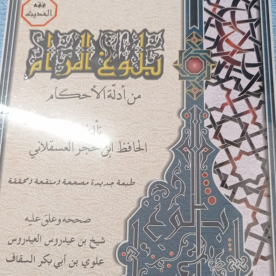 فقه
الحديث
بلوغ المرام
من أدلة الأحكام
تأليف
الحافظ ابن حجر العسقلاني
طبعة جديدة مصححة ومنقحة ومحققة
صححه وعلق عليه
شيخ بن عيدروس العيدروس
علوي بن أبي بكر السقاف